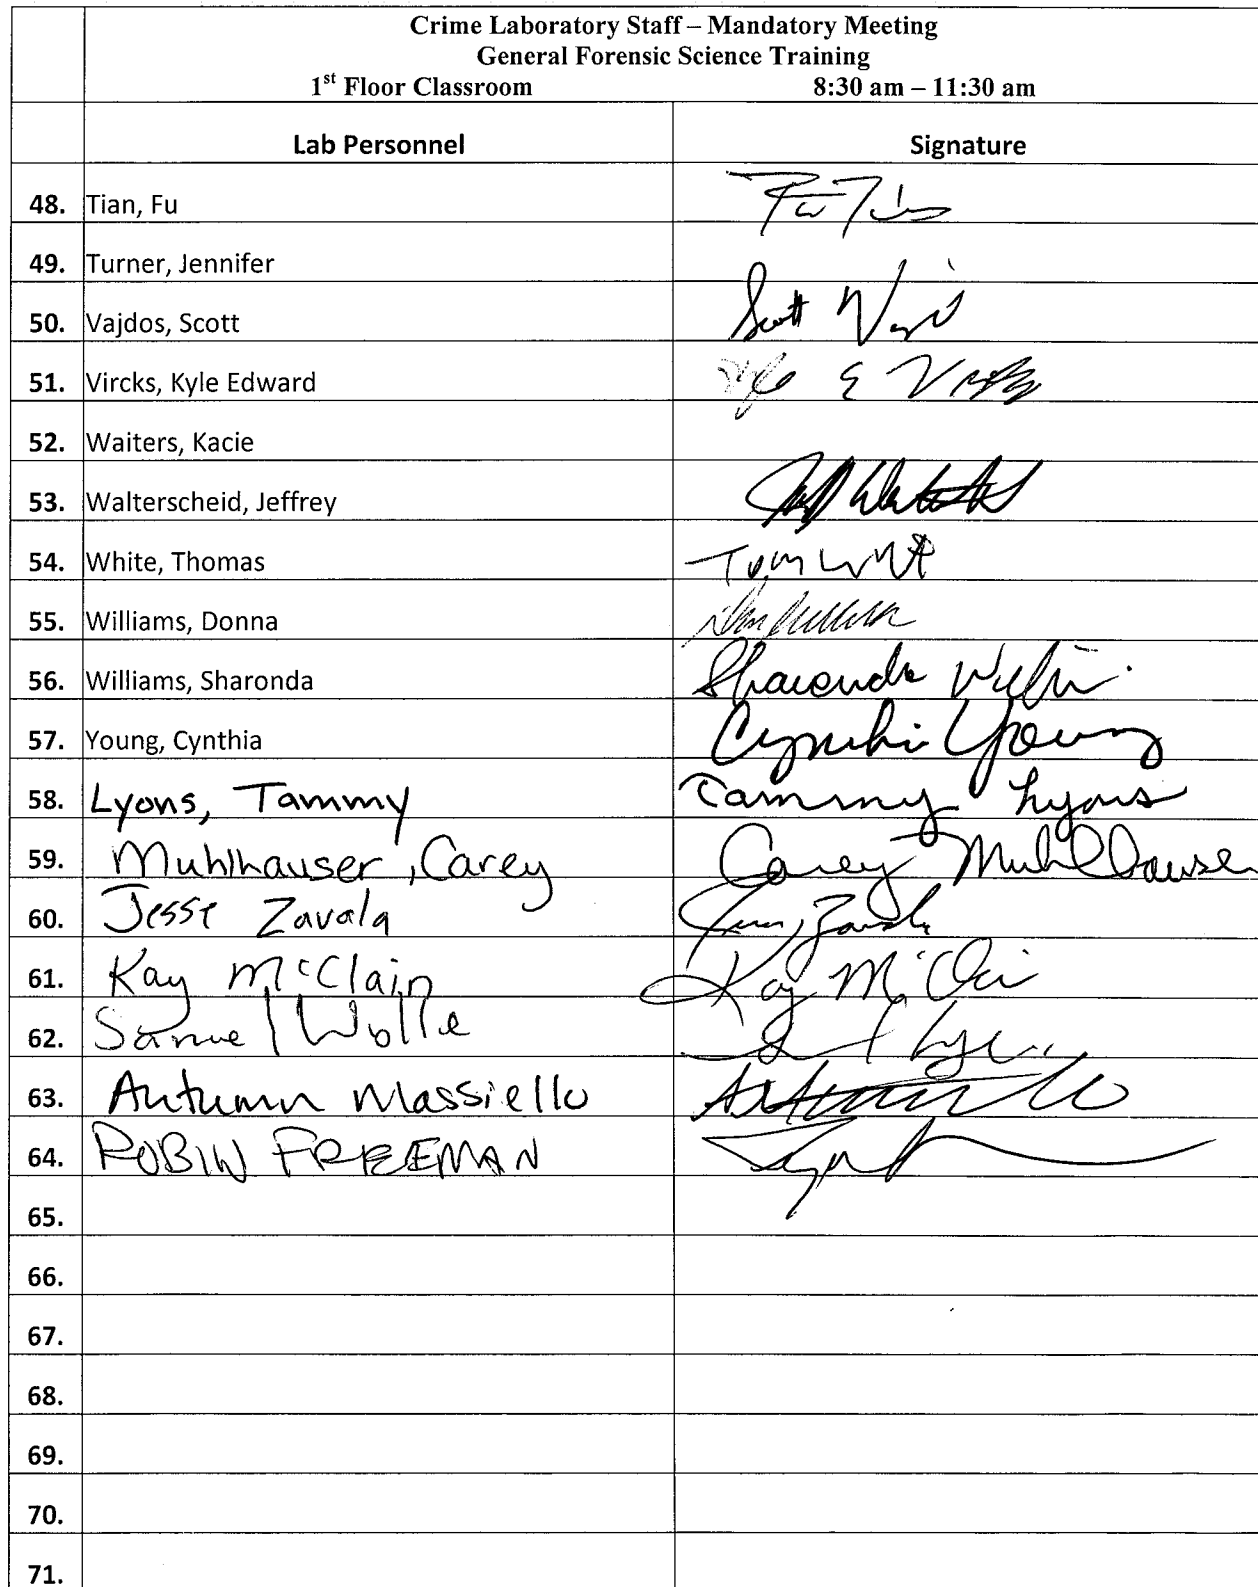 Crime Laboratory Staff – Mandatory Meeting
General Forensic Science Training
1st Floor Classroom 8:30 am – 11:30 am
Lab Personnel Signature
48. Tian, Fu
49. Turner, Jennifer
50. Vajdos, Scott Scott
51. Vircks, Kyle Edward E
52. Waiters, Kacie
53. Walterscheid, Jeffrey
54. White, Thomas Tom
55. Williams, Donna
56. Williams, Sharonda Sharonda
57. Young, Cynthia Cynthia Young
58. Lyons, Tammy Tammy Lyons
59. Muhlhauser, Carey Carey Muhlhauser
60. Jesse Zavala
61. Kay McClain Kay
62. Samuel
63. Autumn Massiello
64. ROBIN FREEMAN
65.
66.
67.
68.
69.
70.
71.